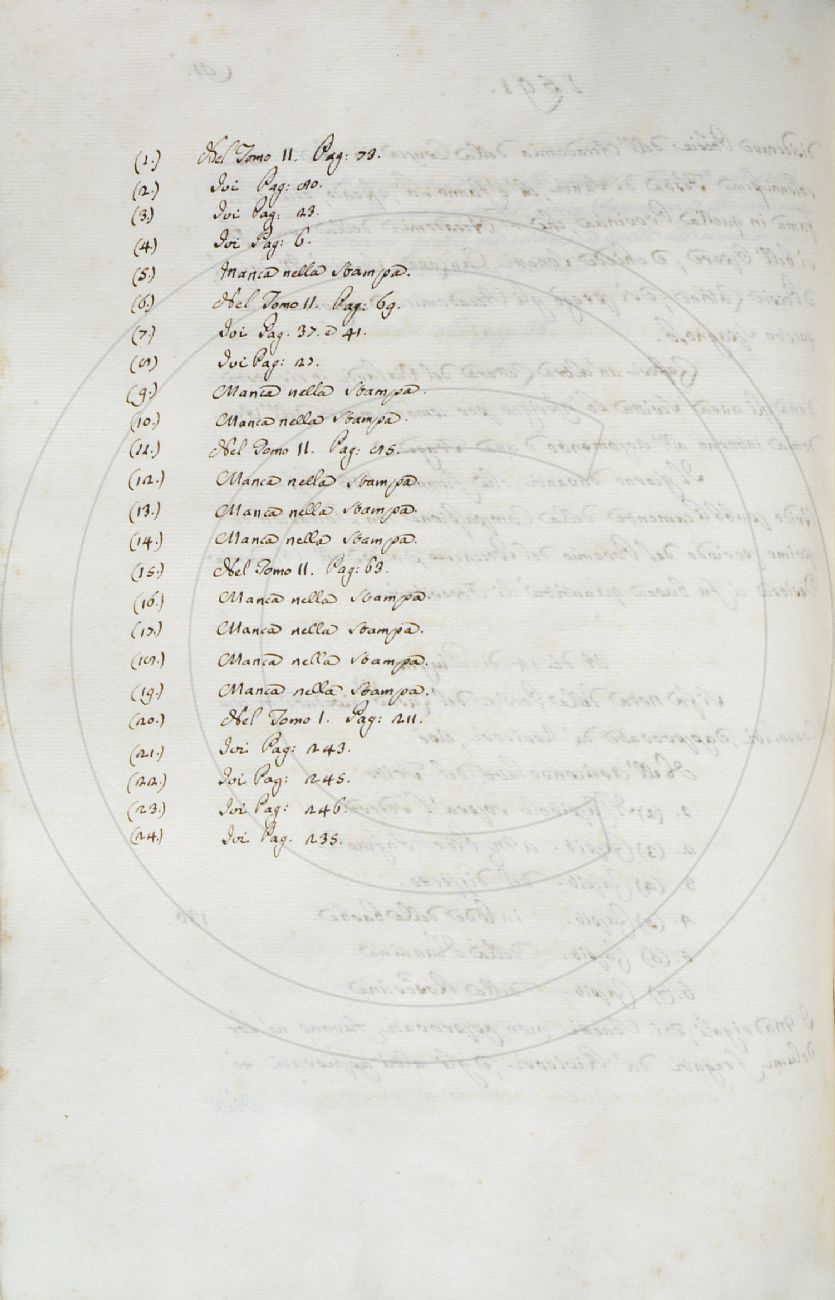 (1.) Nel Tomo II. Pag: 73.
(2.) Ivi Pag: 80.
(3.) Ivi Pag: 23.
(4.) Ivi Pag: 6.
(5.) Manca nella Stampa.
(6.) Nel Tomo II. Pag: 69.
(7.) Ivi Pag. 37. e 41.
(8.) Ivi Pag: 27.
(9.) Manca nella Stampa.
(10.) Manca nella Stampa.
(11.) Nel Tomo II. Pag: 85.
(12.) Manca nella Stampa.
(13.) Manca nella Stampa.
(14.) Manca nella Stampa.
(15.) Nel Tomo II. Pag: 63.
(16.) Manca nella Stampa.
(17.) Manca nella Stampa.
(18.) Manca nella Stampa.
(19.) Manca nella Stampa.
(20.) Nel Tomo I. Pag: 211.
(21.) Ivi Pag: 243.
(22.) Ivi Pag: 245.
(23.) Ivi Pag: 246.
(24.) Ivi Pag. 235.